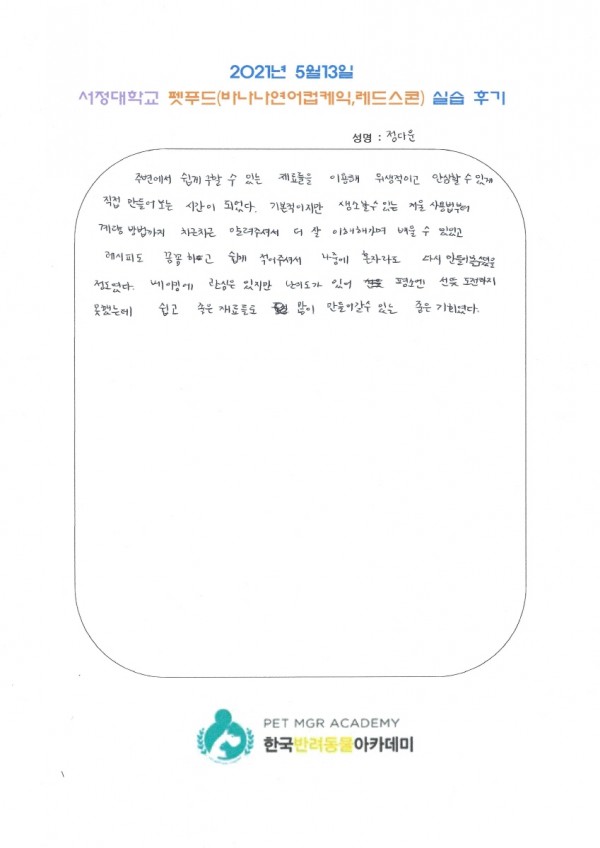 2021년 5월13일
서정대학교 펫푸드(바나나연어컵케익,레드스콘) 실습 후기
성명 : 정다운
주변에서 쉽게 구할 수 있는 재료들을 이용해 위생적이고 안심할 수 있게
직접 만들어 보는 시간이 되었다. 기본적이지만 생소할수 있는 저울 사용법부터
계량 방법까지 차근차근 알려주셔서 더 잘 이해해가며 배울 수 있었고
레시피도 꼼꼼 하고 쉽게 적어주셔서 나중에 혼자라도 다시 만들어봄직했을
정도였다. 베이킹에 관심은 있지만 난이도가 있어 평소엔 선뜻 도전하지
못했는데 쉽고 좋은 재료들로 많이 만들어갈수 있는 좋은 기회였다.
PET MGR ACADEMY
한국반려동물아카데미